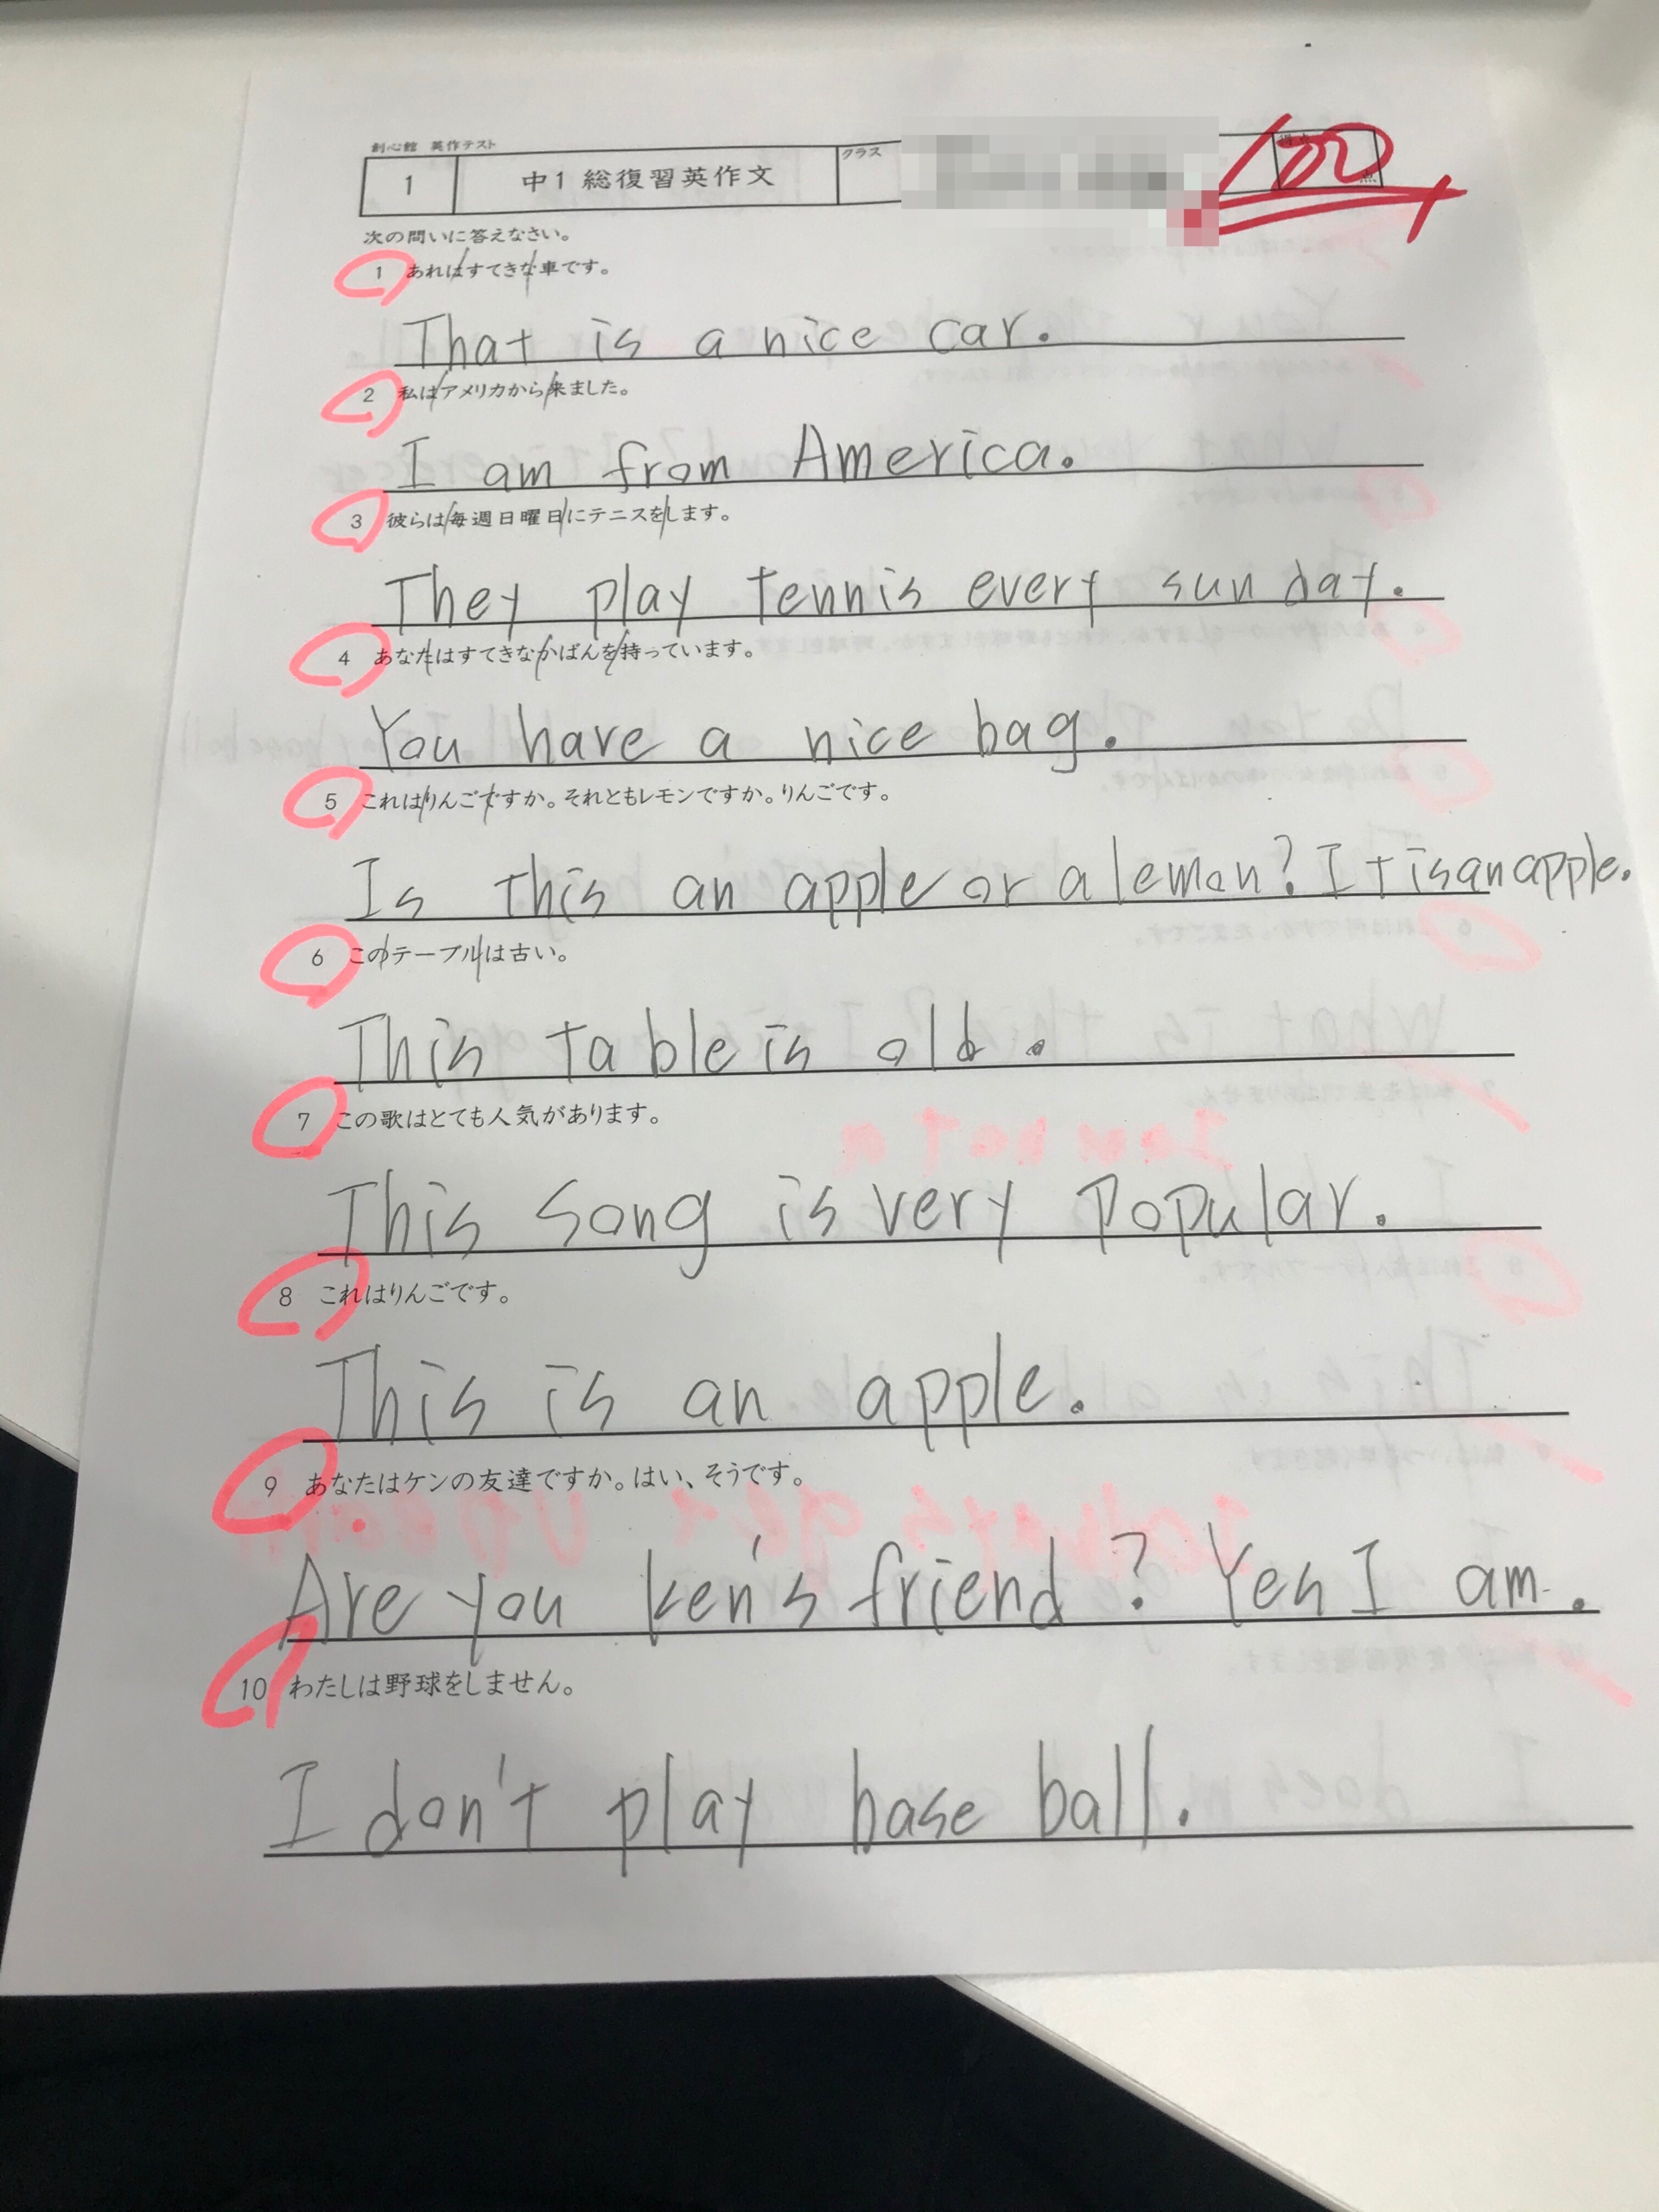 創心館 英作テスト
1 中1 総復習英作文 クラス 100
次の問いに答えなさい。
1 あれはすてきな車です。
That is a nice car.
2 私はアメリカから来ました。
I am from America.
3 彼らは毎週日曜日にテニスをします。
They play tennis every sunday.
4 あなたはすてきなかばんを持っています。
You have a nice bag.
5 これはりんごですか。それともレモンですか。りんごです。
Is this an apple or a lemon? It is an apple.
6 このテーブルは古い。
This table is old.
7 この歌はとても人気があります。
This song is very popular.
8 これはりんごです。
This is an apple.
9 あなたはケンの友達ですか。はい、そうです。
Are you ken's friend? Yes I am.
10 わたしは野球をしません。
I don't play base ball.